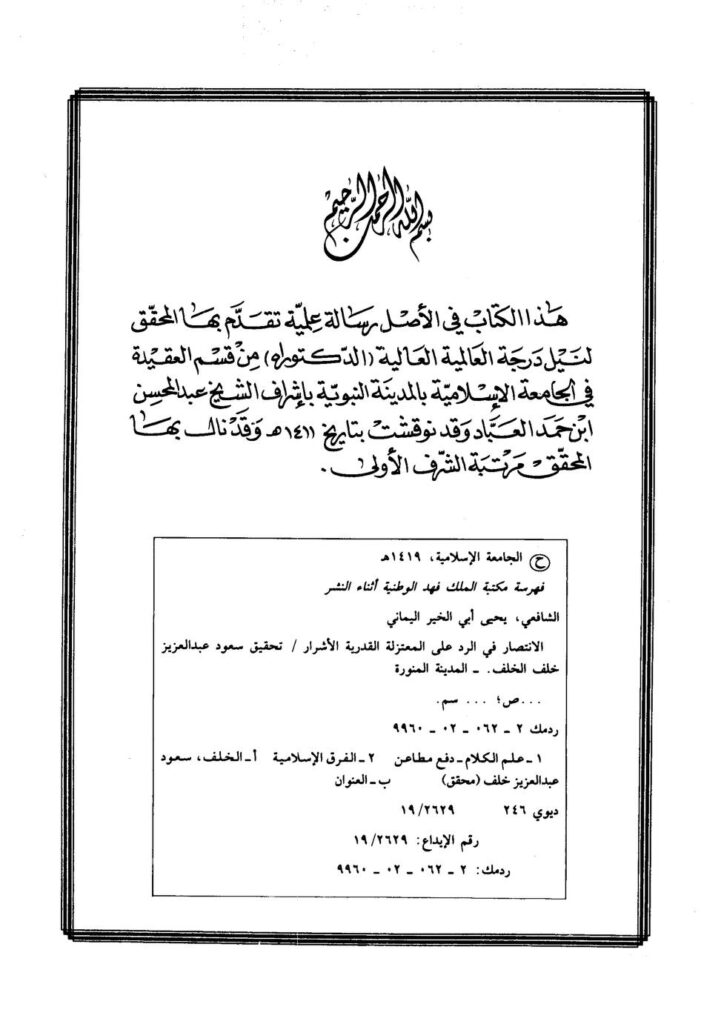 بسم الله الرحمن الرحيم
هذا الكتاب في الأصل رسالة علمية تقدم بها المحقق
لنيل درجة العالمية العالية (الدكتوراه) من قسم العقيدة
في الجامعة الإسلامية بالمدينة النبوية بإشراف الشيخ عبد المحسن
ابن حمد العباد وقد نوقشت بتاريخ ١٤١١ هـ وقد نال بها
المحقق مرتبة الشرف الأولى .
ح الجامعة الإسلامية، ١٤١٩هـ
فهرسة مكتبة الملك فهد الوطنية أثناء النشر
الشافعي، يحيى أبي الخير اليماني
الانتصار في الرد على المعتزلة القدرية الأشرار / تحقيق سعود عبدالعزيز
خلف الخلف. ـ المدينة المنورة
...ص؛ ... سم.
ردمك ٢ ـ ٠٦٢ ـ ٠٢ ـ ٩٩٦٠
١ ـ علم الكلام ـ دفع مطاعن ٢ ـ الفرق الإسلامية أ ـ الخلف، سعود
عبدالعزيز خلف (محقق) ب ـ العنوان
ديوي ٢٤٦ ١٩/٢٦٢٩
رقم الإيداع: ١٩/٢٦٢٩
ردمك: ٢ ـ ٠٦٢ ـ ٠٢ ـ ٩٩٦٠